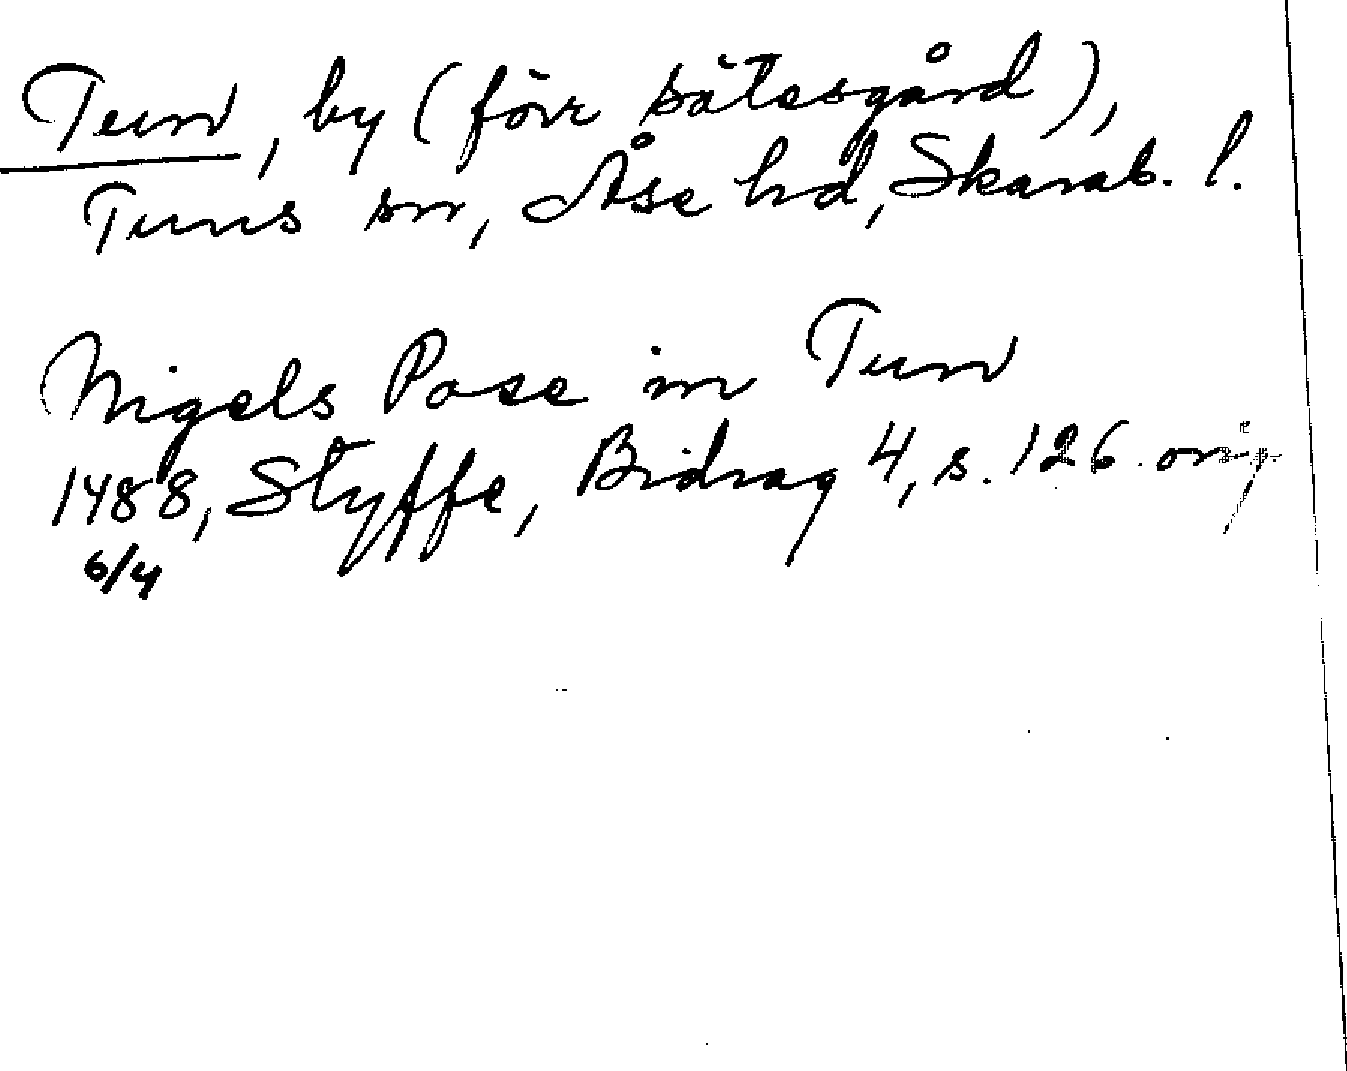 Tun, by (förr sätesgård),
Tuns sn, Åse hd, Skarab. l.
Nigels Pose in Tun
1488, Styffe, Bidrag 4, s. 126 orig
6/4